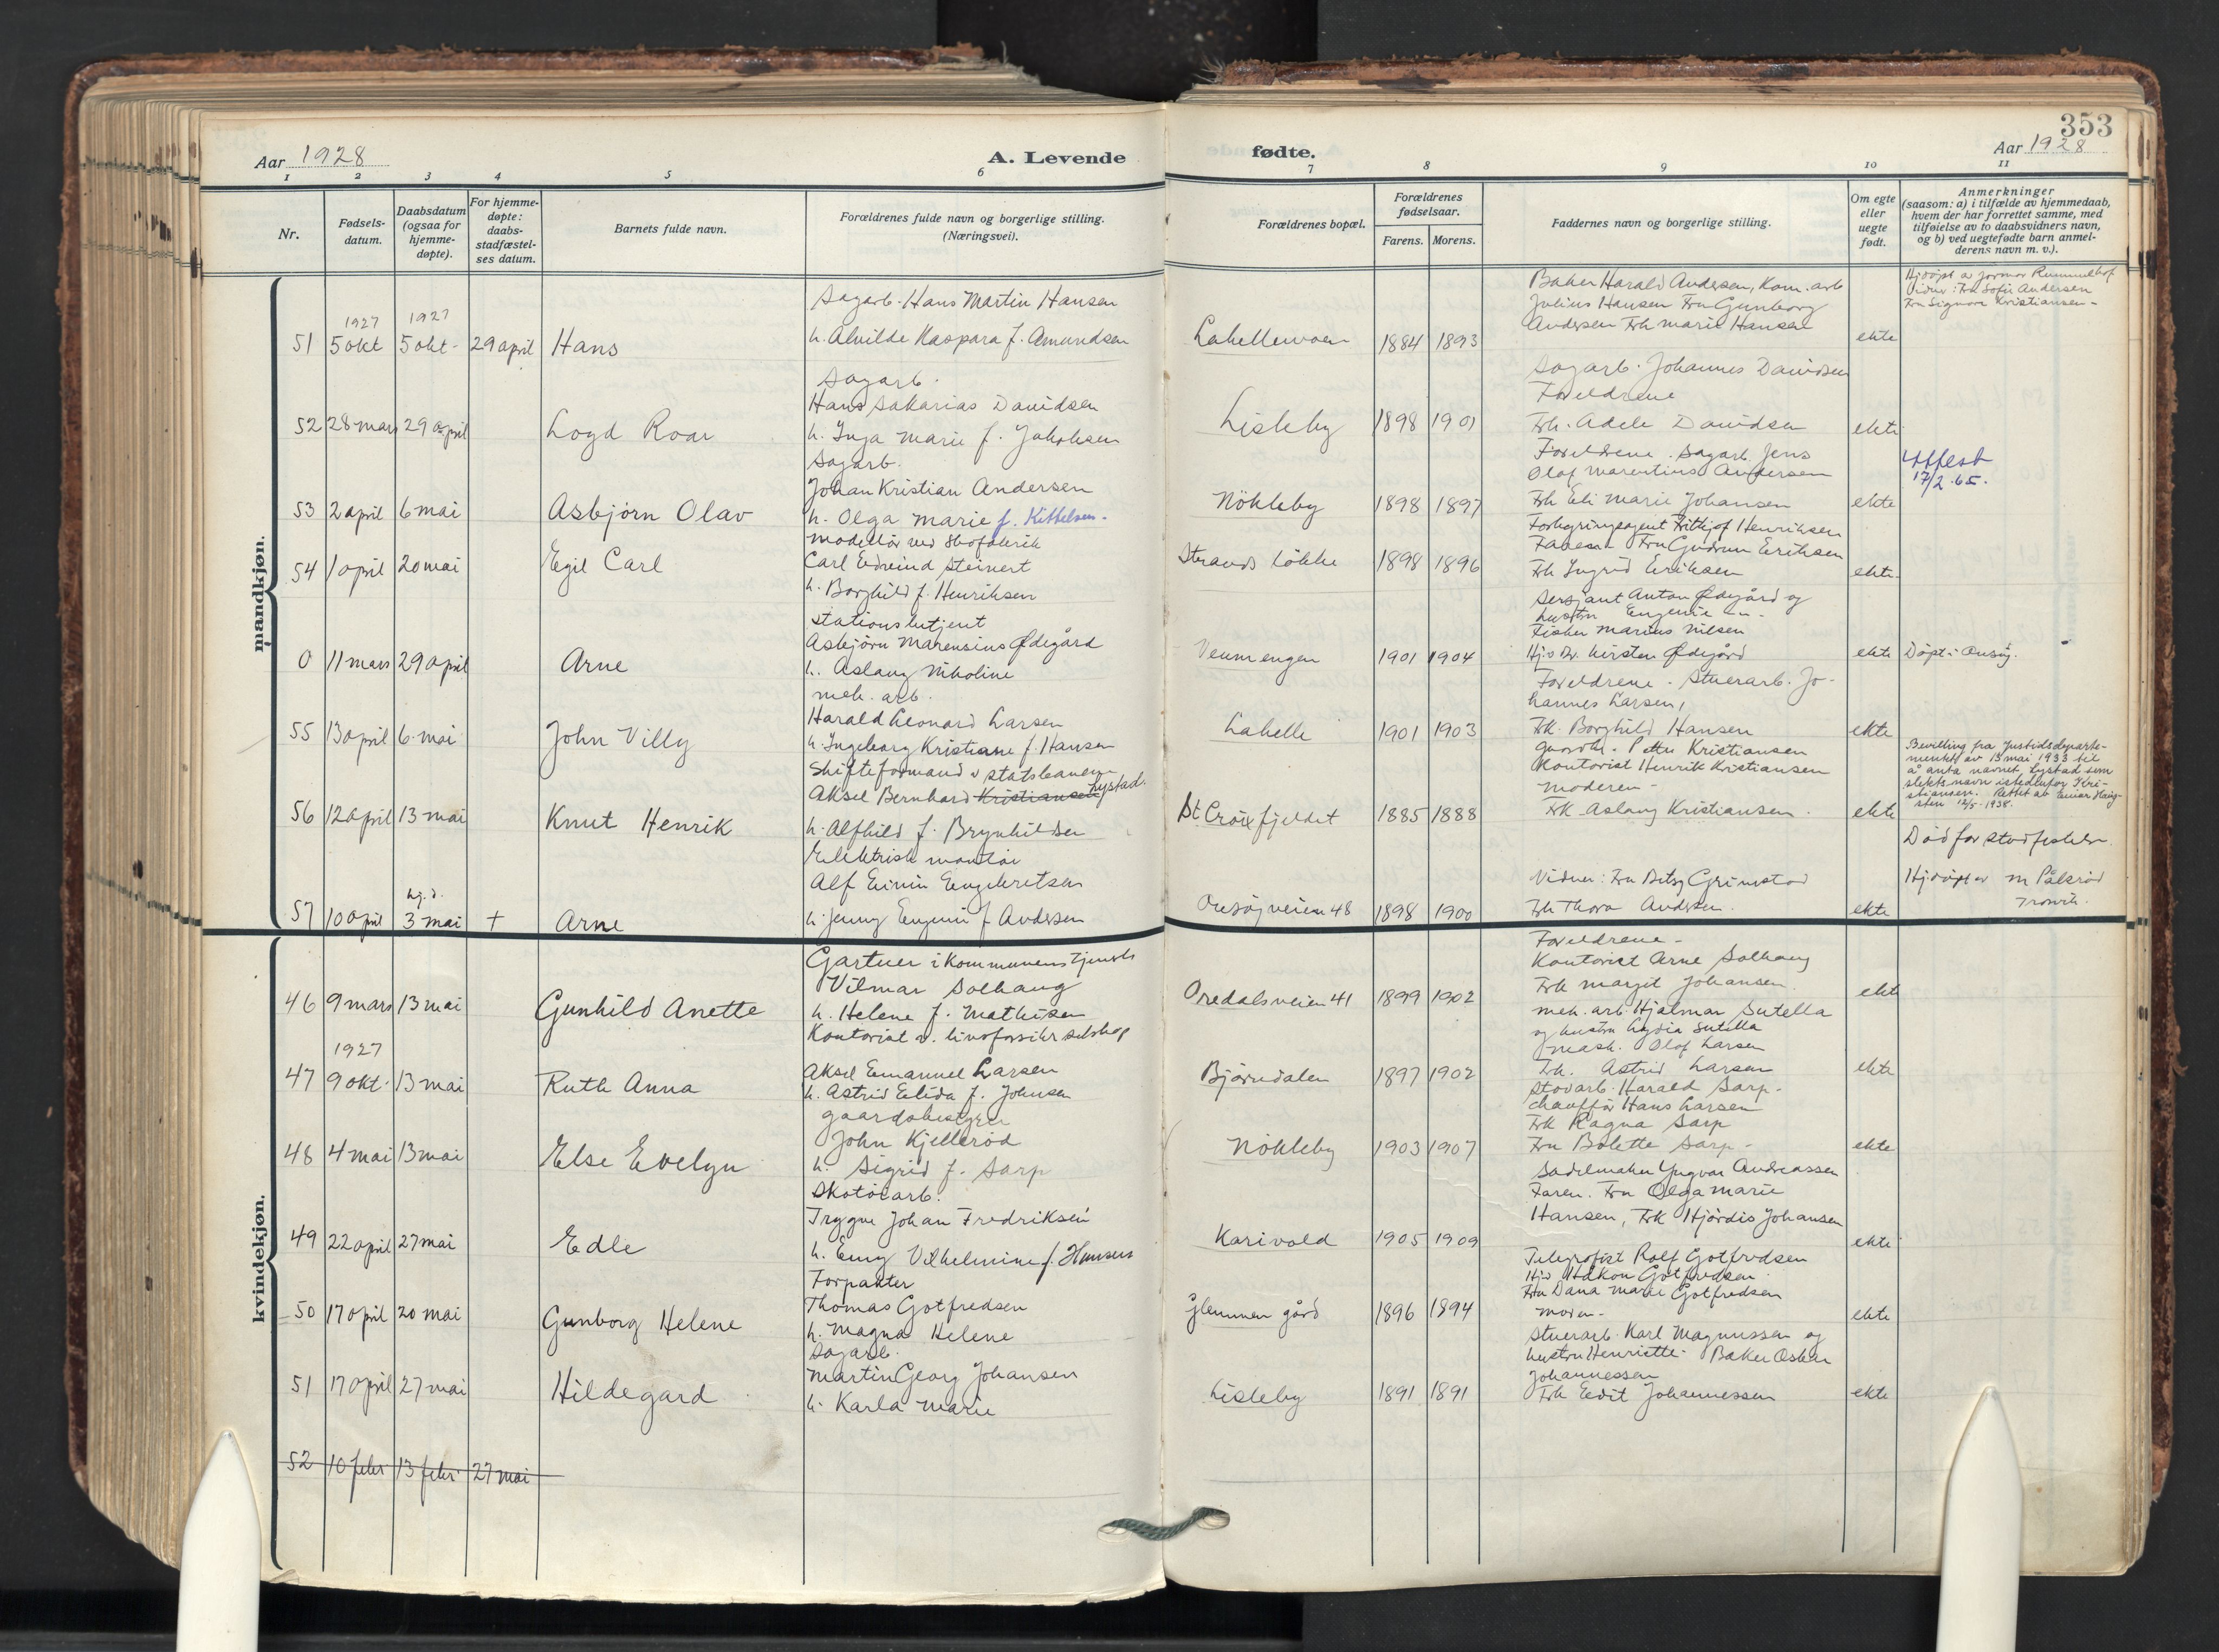 353
Aar 1928
A. Levende
fødte.
Aar 1928
1 2 3 4 5 6 7 8 9 10 11
Nr.
Fødsels-
datum.
Daabsdatum
(ogsaa for
hjemme-
døpte).
For hjemme-
døpte:
daabs-
stadfæstel-
ses datum.
Barnets fulde navn.
Forældrenes fulde navn og borgerlige stilling.
(Næringsvei).
Forældrenes bopæl.
Forældrenes
fødselsaar.
Farens. Morens.
Faddernes navn og borgerlige stilling.
Om egte
eller
uegte
født.
Anmerkninger
(saasom: a) i tilfælde av hjemmedaab,
hvem der har forrettet samme, med
tilføielse av to daabsvidners navn,
og b) ved uegtefødte barn anmel-
derens navn m. v.).
mandkjøn.
51 1927 5 okt 1927 5 okt. 29 april Hans
Sagarb. Hans Martin Hansen
h. Alvilde Kaspara f. Amundsen
1884 1893
Baker Harald Andersen, Kom. arb
Julius Hansen Fru Gunborg
Andersen Frk Marie Hansen
ekte
Hj.døpt av jormor Rummelhof
Vidner: Fru Sofie Andersen
Fru Signora Kristiansen -
52 28 mars 29 april Loyd Roar
Sagarb.
Hans Sakarias Davidsen
h. Inga Marie f. Jakobsen
Lisleby 1898 1901
Sagarb. Johannes Davidsen
Foreldrene
Frk. Adele Davidsen
ekte
53 2 april 6 mai Asbjørn Olav
Sagarb.
Johan Kristian Andersen
h. Olga Marie f. Kittelsen.
Nökleby 1898 1897
Foreldrene. Sagarb. Jens
Olaf Marentius Andersen
Frk Eli Marie Johansen
ekte
Attest
17/2.65.
54 1 april 20 mai Egil Carl
Modellør ved Skofabrik
Carl Edvind Steinert
h. Borghild f. Henriksen
Strands Løkke 1898 1896
Forsikringsagent Fritjof Henriksen
Faderen Fru Gudrun Eriksen
Frk Ingrid Eriksen
ekte
0 11 mars 29 april Arne
Stationsbetjent
Asbjørn Marensius Ødegård
h. Aslaug Nikoline
Veumengen 1901 1904
Sersjant Anton Ødegård og
hustru Eugenie —"—
Fisker Marius Nilsen
Kirsten Ødegård
ekte Døpt i Onsøy.
55 13 april 6 mai John Villy
mek. arb.
Harald Leonard Larsen
h. Ingeborg Kristiane f. Hansen
Labelle 1901 1903
Foreldrene. Stuerarb. Jo-
hannes Larsen,
Frk. Borghild Hansen
ekte
56 12 april 13 mai Knut Henrik
Skifteformand v statsbanen
Aksel Bernhard Kristiansen Lystad.
h. Alfhild f. Brynhildsen
St Croix fjeldet 1885 1888
Petter Kristiansen
Kontorist Henrik Kristiansen
moderen -
Frk Aslaug Kristiansen.
ekte
Bevilling fra Justisdeparte-
mentet av 13 mai 1933 til
å anta navnet Lystad som
slektsnavn istedenfor Kri-
stiansen. Rettet av Einar Haug-
sten 12/5-1938.
57 10 april hj.d. 3 mai + Arne
Elektrisk montør
Alf Eivin Engebretsen
h. Jenny Eugenie f Andersen
Onsøyveien 48 1898 1900
Vidner: Fru Betsy Grimstad
Frk Thora Andersen.
ekte
Død før stadfestelse.
Hj.døpt av M Pålsrød
kvindekjøn.
46 9 mars 13 mai Gunhild Anette
Gartner i kommunens tjeneste
Vilmar Solhaug
h. Helene f. Mathisen
Oredalsveien 41 1899 1902
Foreldrene -
Kontorist Arne Solhaug
Frk Margit Johansen.
ekte
47 1927 9 okt. 13 mai Ruth Anna
Kontorist v. livsforsikr selskap
Aksel Emanuel Larsen
h. Astrid Elida f. Johnsen
Bjørndalen 1897 1902
mek. arb. Hjalmar Sutella
og hustru Lydia Sutella
mask. Olof Larsen
Frk. Astrid Larsen
ekte
48 4 mai 13 mai Else Evelyn
gaardsbestyrer
John Kjellerød
h. Sigrid f. Sarp
Nökleby 1903 1907
Stovarb. Harald Sarp.
chauffør Hans Larsen
Frk Ragna Sarp
Fru Bolette Sarp -
ekte
49 22 april 27 mai Edle
Skotøiarb.
Trygve Johan Fredriksen
h. Emy Vilhelmine f. Hansen
Karivold 1905 1909
Sadelmaker Yngvar Andreassen
Faren. Fru Olga Marie
Hansen, Frk Hjørdis Johansen
ekte
50 17 april 20 mai Gunborg Helene
Forpakter
Thomas Gotfredsen
h. Magna Helene
Glemmen gård 1896 1894
Telegrafist Rolf Gotfredsen
Håkon Gotfredsen.
Fru Dana Marie Gotfredsen
moren.
ekte
51 17 april 27 mai Hildegard
Sagarb.
Martin Georg Johansen
h. Karla Marie
Lisleby 1891 1891
Stuerarb. Karl Magnussen og
hustru Henriette. Baker Oskar
Johannessen
Frk Edit Johannessen
ekte
52 10 febr 13 febr 27 mai